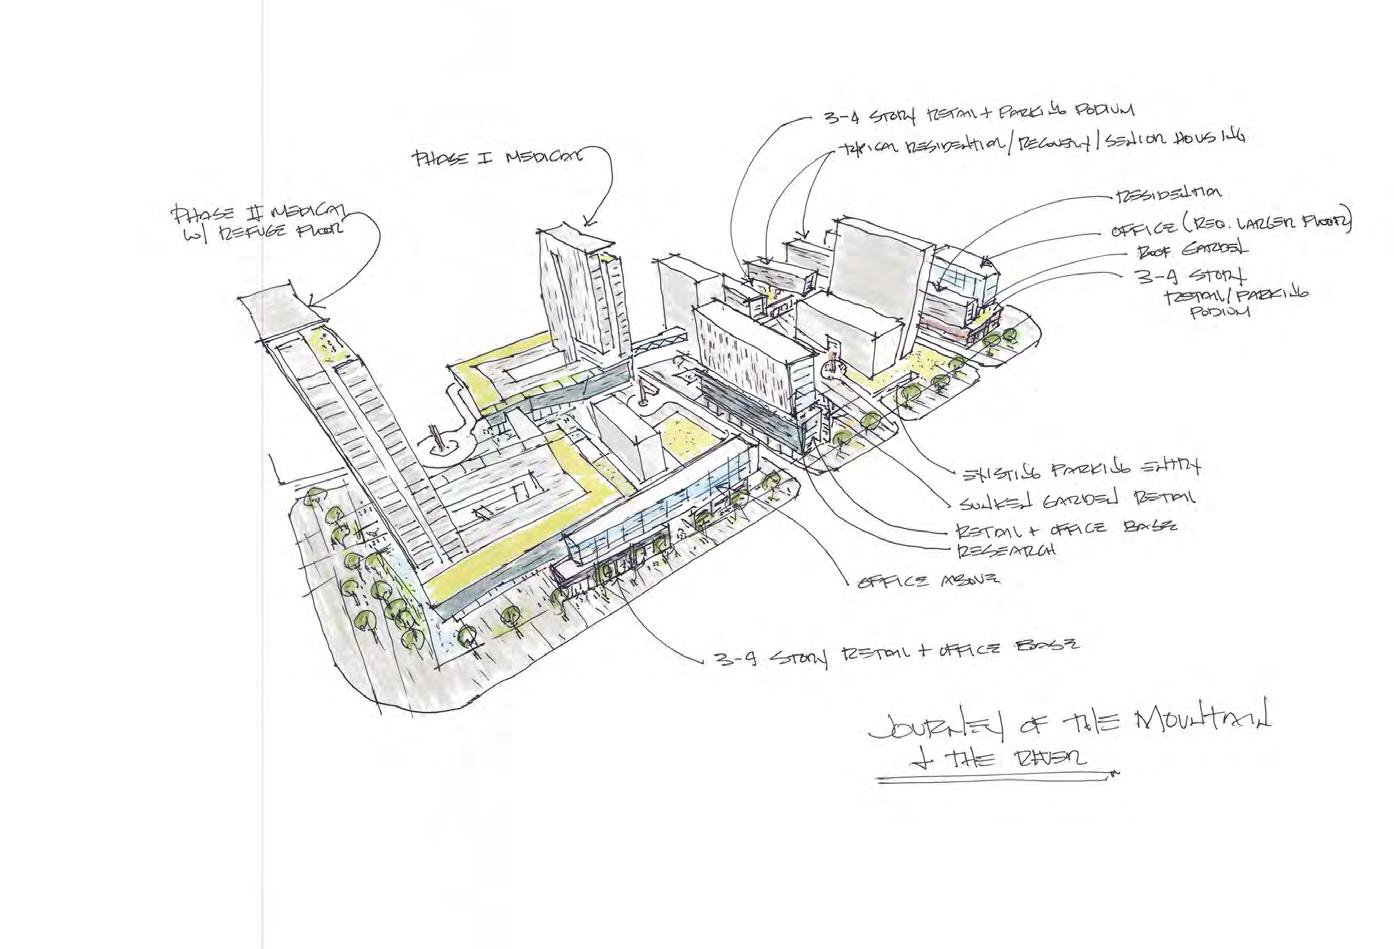 3-4 STORY RETAIL + PARKING PODIUM
TYPICAL RESIDENTIAL/RECOVERY/SENIOR HOUSING
PHASE I MEDICAL
RESIDENTIAL
PHASE II MEDICAL
W/ REFUGE FLOOR
OFFICE (REQ. LARGER FLOOR)
ROOF GARDEN
3-4 STORY
RETAIL/PARKING
PODIUM
EXISTING PARKING ENTRY
SUNKEN GARDEN RETAIL
RETAIL + OFFICE BASE
RESEARCH
OFFICE ABOVE
3-4 STORY RETAIL + OFFICE BASE
JOURNEY OF THE MOUNTAIN
+ THE RIVER